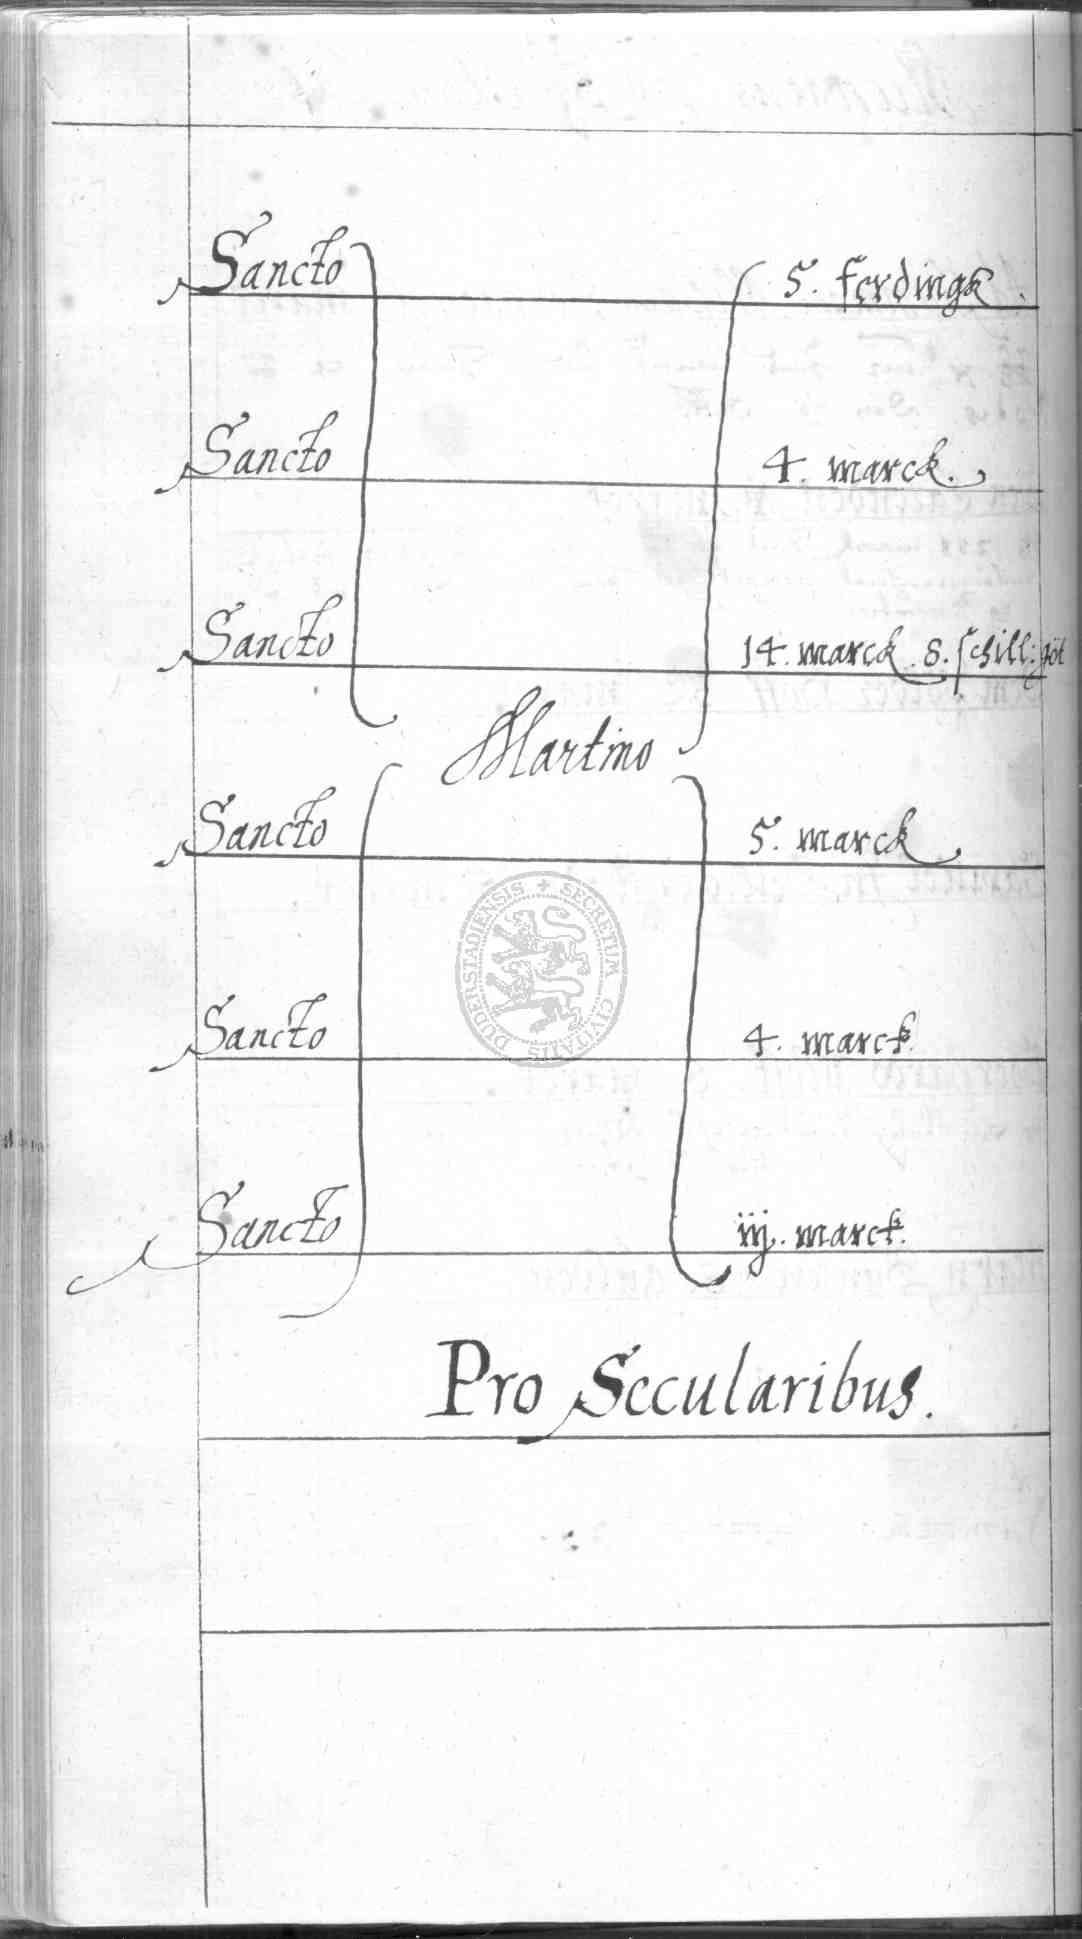 Sancto 5. ferdingk.
Sancto 4. marck.
Sancto 14. marck. 8. schill: göt
Martino
Sancto 5. marck
Sancto 4. marck.
Sancto iij. marck.
Pro Secularibus.
SECRETUM CIVITATIS DUDERSTADIENSIS